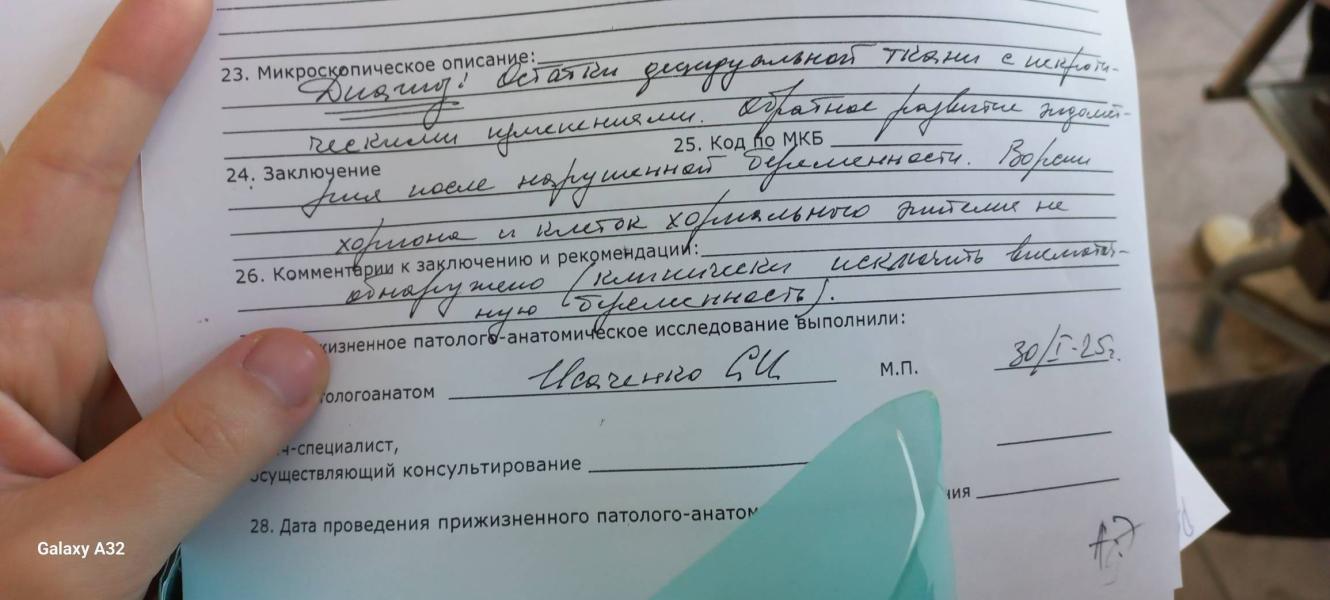 23. Микроскопическое описание:
Диагноз! Остатки децидуальной ткани с некроти-
ческими изменениями. Обратное развитие эндомет-
25. Код по МКБ
24. Заключение
рия после нарушенной беременности. Ворсин
хориона и клеток хориального эпителия не
26. Комментарии к заключению и рекомендации:
обнаружено (клинически исключить внематоч-
ную беременность).
жизненное патолого-анатомическое исследование выполнили:
тологоанатом Исаченко СИ М.П. 30/I-25г.
ч-специалист,
осуществляющий консультирование
ния
28. Дата проведения прижизненного патолого-анатом
Galaxy A32